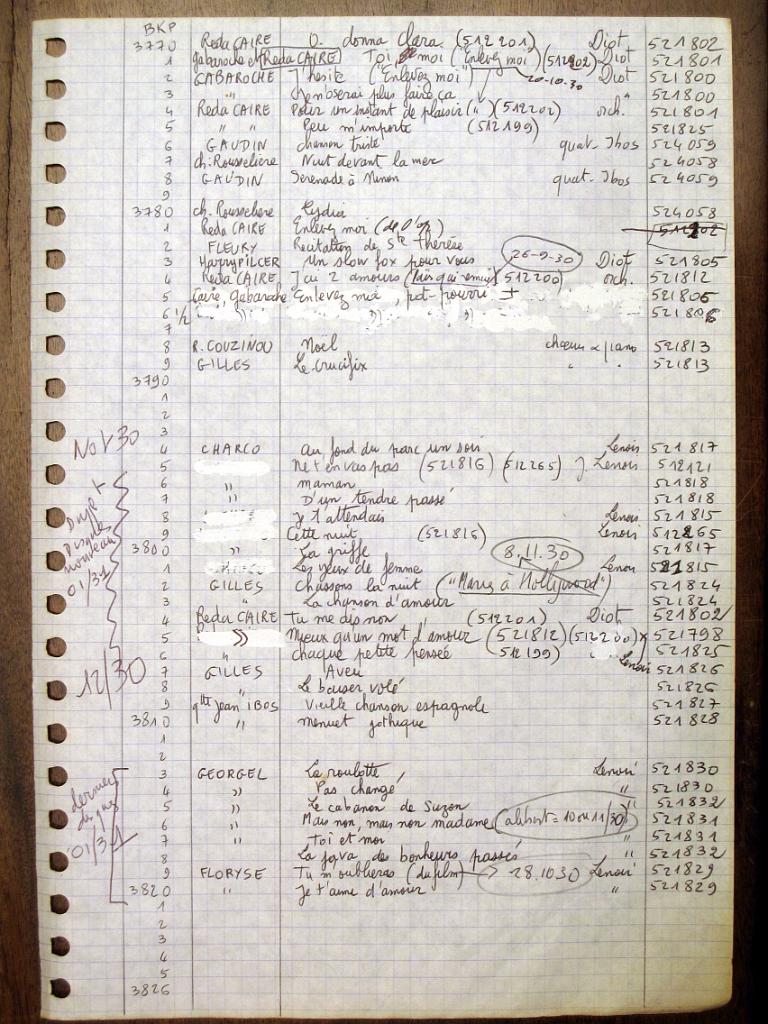 BKP
3770 Reda CAIRE O. donna Clara (512201) Diot 521802
1 gabaroche et Reda CAIRE Toi, moi ("Enlevez moi") (512202) Diot 521801
2 GABAROCHE J'hesite ("Enlevez moi") 20-10.30 Diot 521800
3 " J'n'oserai plus faire ça " 521800
4 Reda CAIRE Pour un instant de plaisir (") (512202) orch. 521801
5 " " Peu m'importe (512199) 521825
6 GAUDIN chanson triste quat. Ibos 524059
7 ch. Rousseliere Nuit devant la mer 524058
8 GAUDIN Serenade à Ninon quat. Ibos 524059
9
3780 ch. Rousseliere Lydia 524058
1 Reda CAIRE Enlevez moi (de l'op) 512202
2 FLEURY Recitation de Ste Thérèse
3 Harry PILCER Un slow fox pour vous 26-9-30 Diot 521805
4 Reda CAIRE J'ai 2 amours (512200) orch. 521812
5 Caire, gabaroche Enlevez moi, pot-pourri + 521806
6 1/2 " " 521806
7
8 R. COUZINOU Noël chœur & piano 521813
9 GILLES Le crucifix " " 521813
3790
1
2
3
Nov 30
4 CHARCO au fond du parc un soir Lenoir 521817
5 Ne t'en vas pas (521816) (512265) J. Lenoir 512121
6 " maman 521818
7 " D'un tendre passé 521818
8 Je t'attendais Lenoir 521815
9 Cette nuit (521816) Lenoir 512265
3800 " La griffe 8.11.30 521817
1 Les yeux de femme Lenoir 521815
2 GILLES chassons la nuit ("Maris à Hollywood") 521824
3 " La chanson d'amour 521824
4 Reda CAIRE Tu me dis non (512201) Diot 521802
5 " Mieux qu'un mot d'amour (521812) (512200) x 521798
6 " chaque petite pensée (512199) 521825
7 GILLES Aveu Lenoir 521826
8 " Le baiser volé 521826
9 qtte Jean IBOS Vieille chanson espagnole 521827
3810 " menuet gothique 521828
1
2
Disque nouveau
01/31
12/30
3 GEORGEL La roulotte Lenoir 521830
4 " Pas changé " 521830
5 " Le cabanon de Suzon " 521832
6 " Mais non, mais non madame (alibert = 10 ou 11/30) 521831
7 " Toi et moi " 521831
8 La java des bonheurs passés " 521832
9 FLORYSE Tu m'oublieras (du film) 28.10 30 Lenoir 521829
3820 " Je t'aime d'amour " 521829
dernier
01/31
1
2
3
4
5
3826